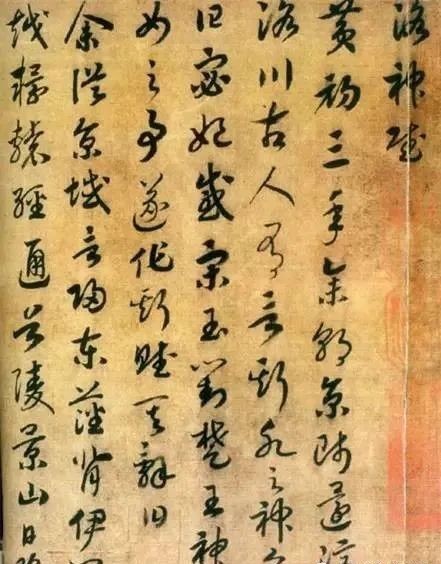 洛神賦
黄初三年余朝京師還濟
洛川古人有言斯水之神名
曰宓妃感宋玉對楚王神
女之事遂作斯賦其辭曰
余從京域言歸東藩背伊
越轘轅經通谷陵景山日